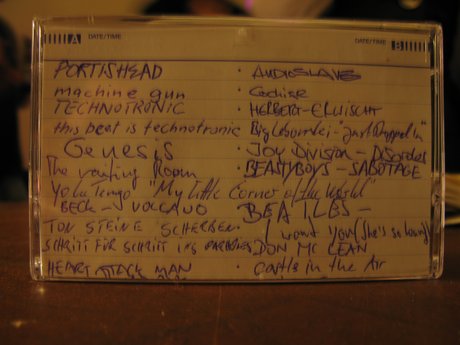 A DATE/TIME
DATE/TIME B
PORTISHEAD
machine gun
TECHNOTRONIC
this beat is technotronic
Genesis
The waiting Room
Yo La Tengo "My little Corner of the World"
BECK - VOLCANO
TON STEINE SCHERBEN
SCHRITT FÜR SCHRITT INS PARADIES
HEART ATTACK MAN
· AUDIOSLAVE
· Cochise
· HERBERT - ERWISCHT
Big Lebowski - "Just Dropped in"
· JOY DIVISION - Disorder
· BEASTYBOYS - SABOTAGE
BEATLES -
I want you (She's so heavy)
· DON MC LEAN
· Castle in the Air